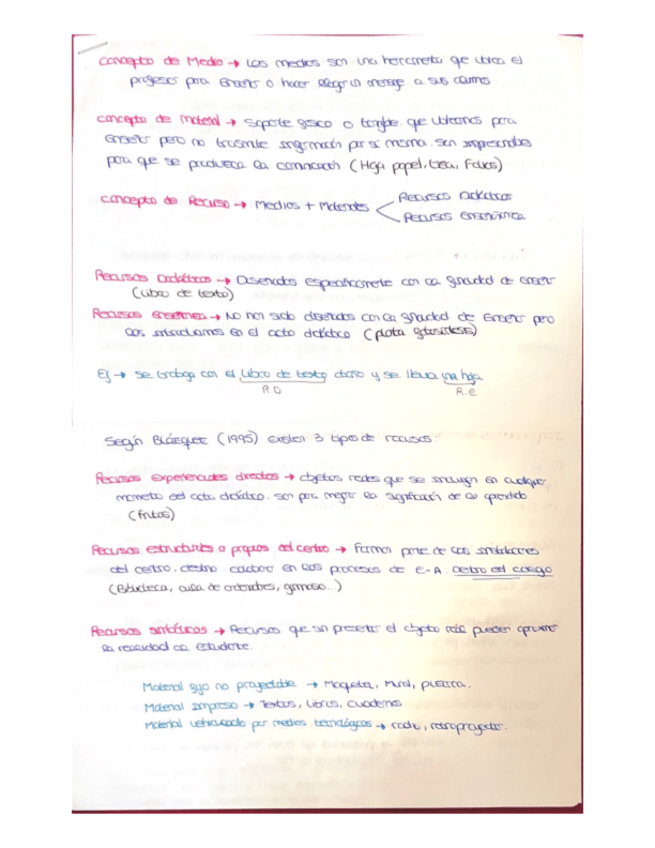 Concepto de Medio → Los medios son una herramienta que utiliza el
profesor para enseñar o hacer llegar un mensaje a sus alumnos
Concepto de material → Soporte físico o tangible que utilizamos para
enseñar pero no transmite información por si misma. Son imprescindibles
para que se produzca la comunicación (Hoja papel, tiza, Folios)
Concepto de Recurso → Medios + Materiales
Recursos Didácticos
Recursos Enseñanza
Recursos Didácticos → Diseñados específicamente con la finalidad de enseñar
(Libro de texto)
Recursos enseñanza → No han sido diseñados con la finalidad de enseñar pero
los introducimos en el acto didáctico (planta fotosíntesis)
Ej → se trabaja con el libro de texto diario y se lleva una hoja
R.D
R.E
Según Blázquez (1995) existen 3 tipos de recursos
Recursos experienciales directos → objetos reales que se incluyen en cualquier
momento del acto didáctico. Son para mejorar la significación de lo aprendido
(frutas)
Recursos estructurales o propios del centro → Forman parte de las instalaciones
del centro. destino colaborar en los procesos de E-A. Dentro del colegio
(Biblioteca, aula de ordenadores, gimnasio...)
Recursos simbólicos → Recursos que sin presentar el objeto real pueden aproximar
la realidad al estudiante.
Material fijo no proyectable → Maqueta, Mural, pizarra.
Material impreso → Textos, libros, cuadernos
Material vehiculado por medios tecnológicos → radio, retroproyector.